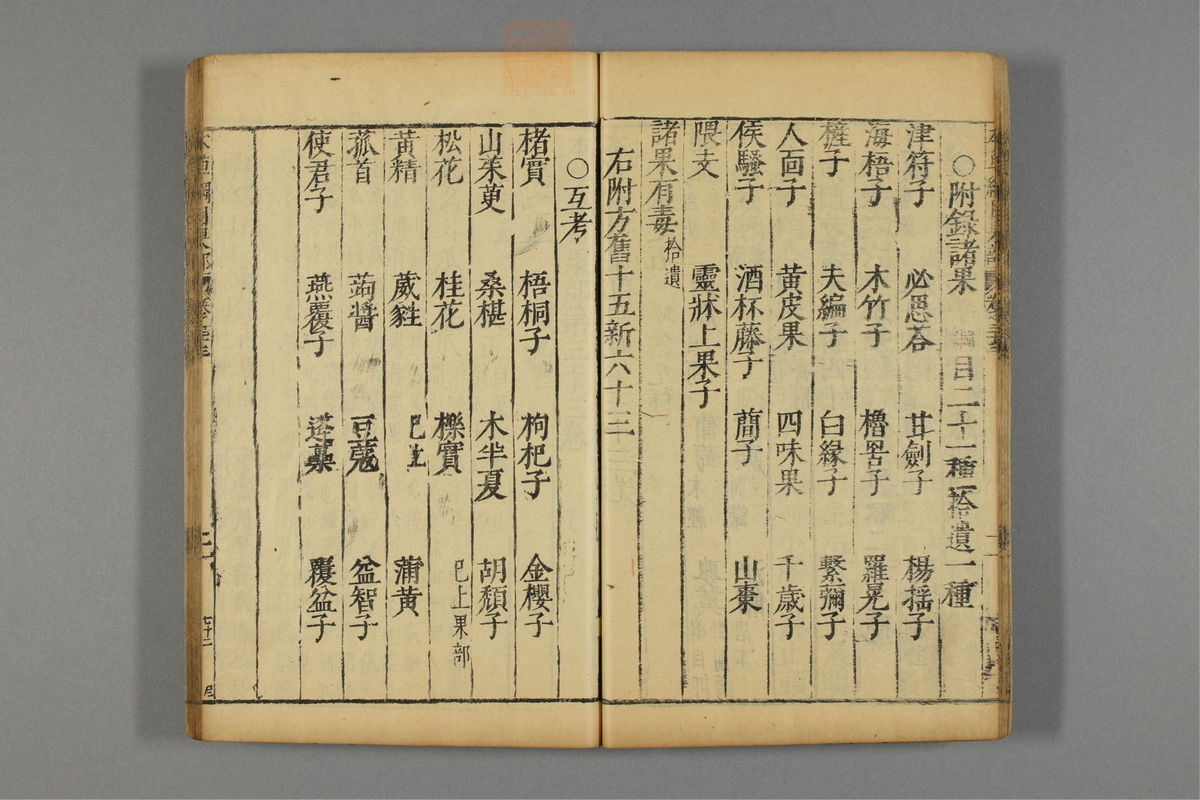 ○附錄諸果 綱目二十一種拾遺一種
津符子 必思荅 甘劍子 楊搖子
海梧子 木竹子 櫓罟子 羅晃子
㯉子 夫編子 白緣子 繫彌子
人面子 黃皮果 四味果 千歲子
侯騷子 酒杯藤子 䕞子 山棗
隈支 靈牀上果子
諸果有毒 拾遺
右附方舊十五新六十三
○互考
楮實 梧桐子 枸杞子 金櫻子
山茱萸 桑椹 木半夏 胡頹子
松花 桂花 櫟實 已上果部
黃精 葳蕤 蒲黃
菰首 蒟醬 豆蔻 益智子
使君子 燕覆子 蓬虆 覆盆子